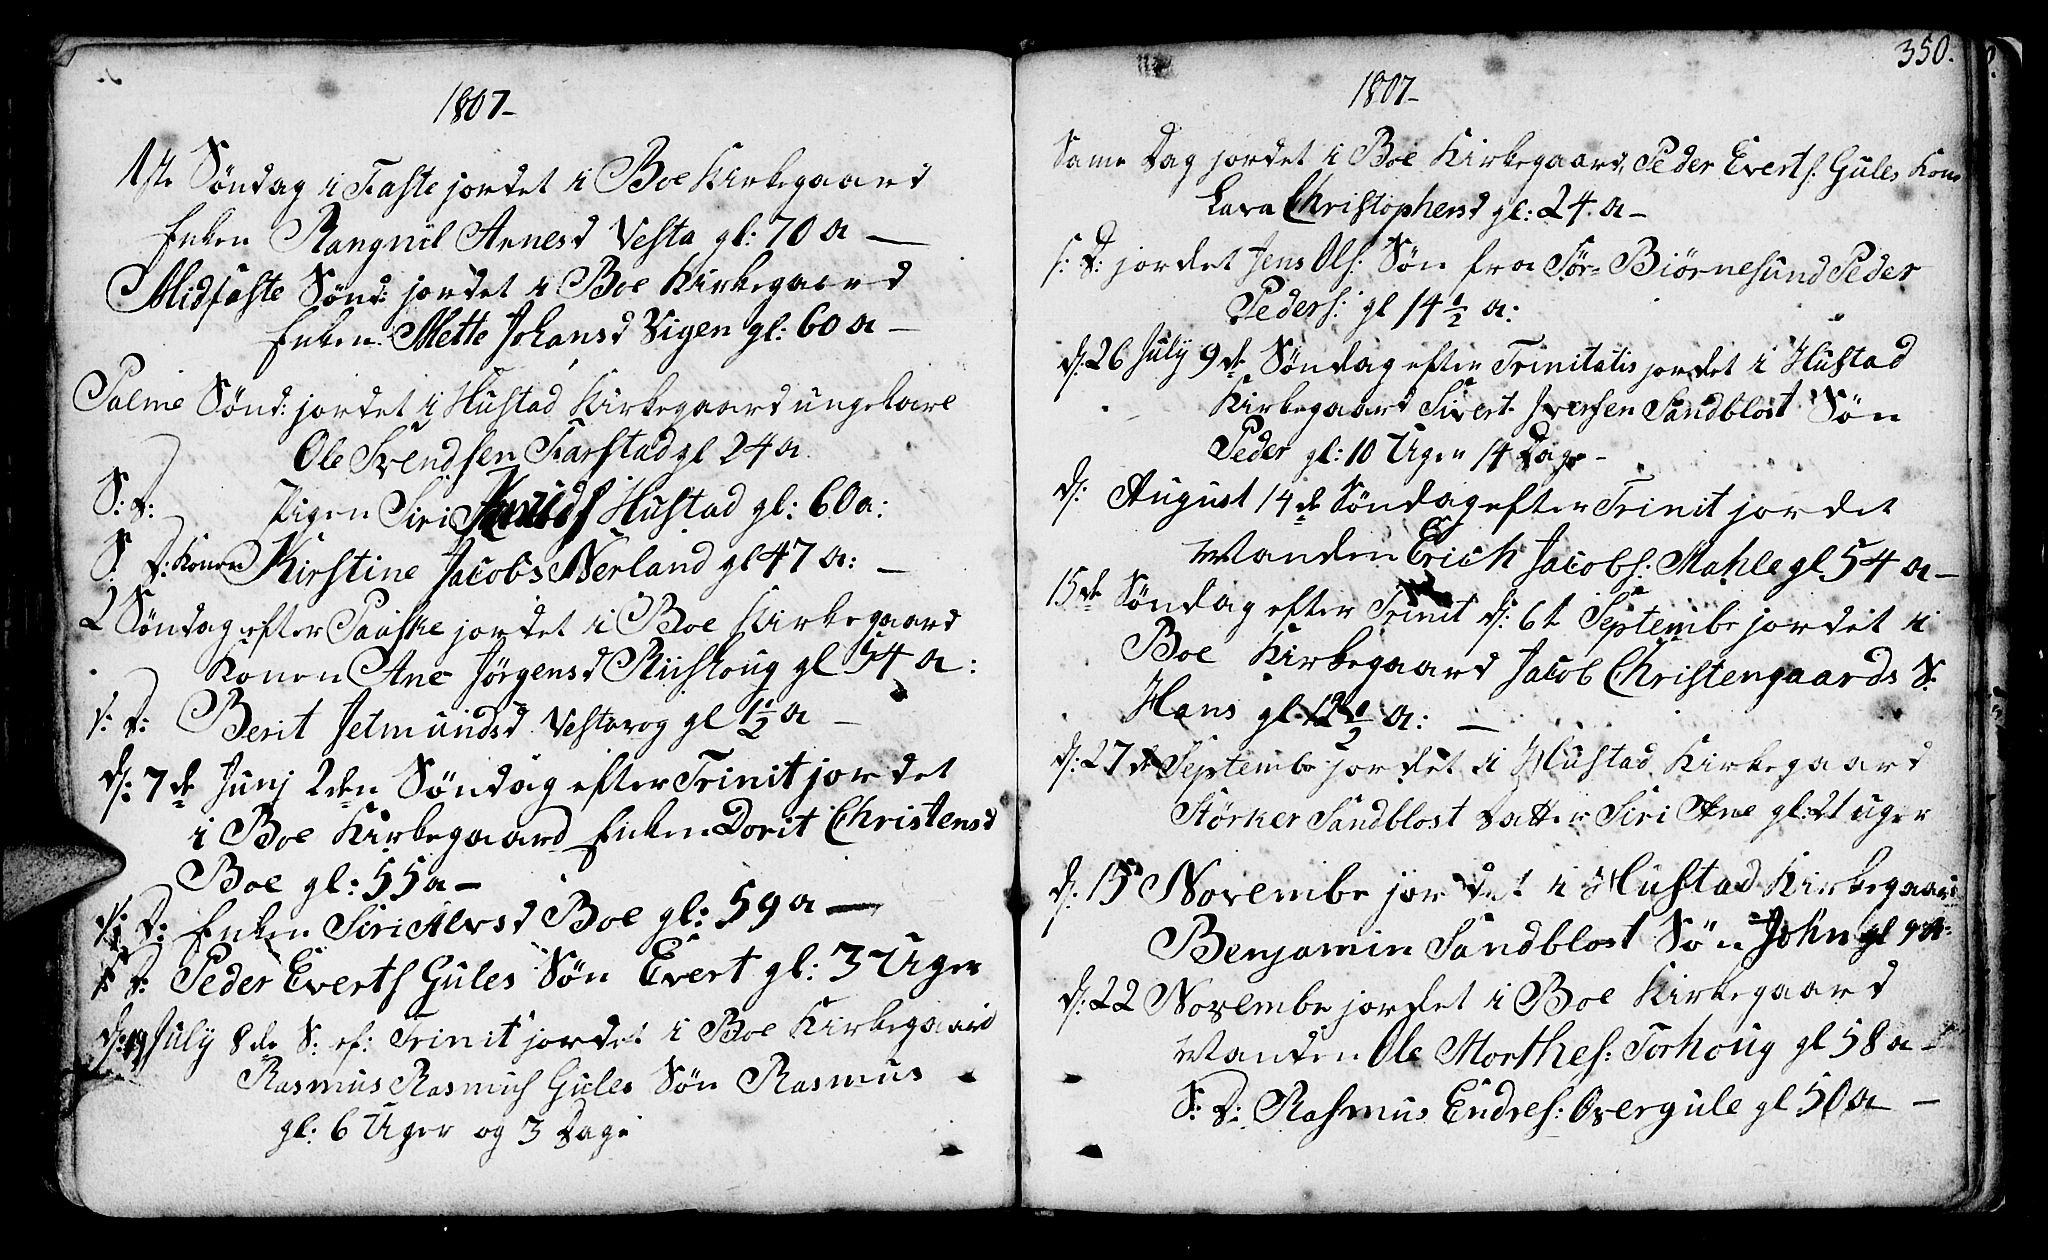 1807-
1ste Søndag i Faste jordet i Boe Kirkegaard
Enken Rangnil Arnesd Vesta gl: 70 a —
Midfaste Sønd: jordet i Boe Kirkegaard
Enken Mette Johansd Vigen gl: 60 a —
Palme Sønd: jordet i Hustad Kirkegaard ungekarl
Ole Svendsen Farstad gl 24 a
S: D: Pigen Siri Hustad gl: 60 a:
S. D: Konen Kirstine Jacobs Nerland gl 47 a: —
2 Søndag efter Paaske jordet i Boe Kirkegaard
Konen Ane Jørgensd Riishoug gl 54 a:
s: D: Berit Jetmundsd Vestavog gl 1½ a —
d: 7de Junj 2den Søndag efter Trinit jordet
i Boe Kirkegaard Enken Dorit Christensd
Boe gl: 55 a —
s: D: Enken Siri Alvsd Boe gl: 59 a —
s: D: Peder Everts Gules Søn Evert gl: 3 Uger
d: 19 July 8de S: ef: Trinit jordet i Boe Kirkegaard
Rasmus Rasmus Gules Søn Rasmus
gl: 6 Uger og 3 Dage
350.
1807-
Same Dag jordet i Boe Kirkegaard, Peder Everts: Gules Kone
Lava Christophersd gl: 24. a —
s: D: jordet Jens Ols: Søn fra Sør- Biørnesund Peder
Peders: gl 14½ a:
d: 26 July 9de Søndag efter Trinitatis jordet i Hustad
Kirkegaard Sivert Iversen Sandblost Søn
Peder gl: 10 Ugen 14 Dage —
d: August 14de Søndag efter Trinit jordet
Manden Erich Jacobs: Mahle gl 54 a —
15de Søndag efter Trinit d: 6t Septembr jordet i
Boe Kirkegaard Jacob Christengaards S:
Hans gl: ½ a: —
d: 27de Septembr jordet i Hustad Kirkegaard
Størker Sandblost Datter Siri Ane gl: 21 uger
d: 15 Novembr jordet i Hustad Kirkegaard
Benjamin Sandblost Søn John gl 9 a:
d: 22 Novembr jordet i Boe Kirkegaard
Manden Ole Morthes: Torhoug gl 58 a —
S: D: Rasmus Endres: Overgule gl 50 a —